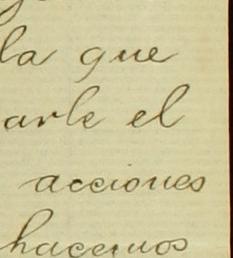 la que
arle el
acciones
hacemos